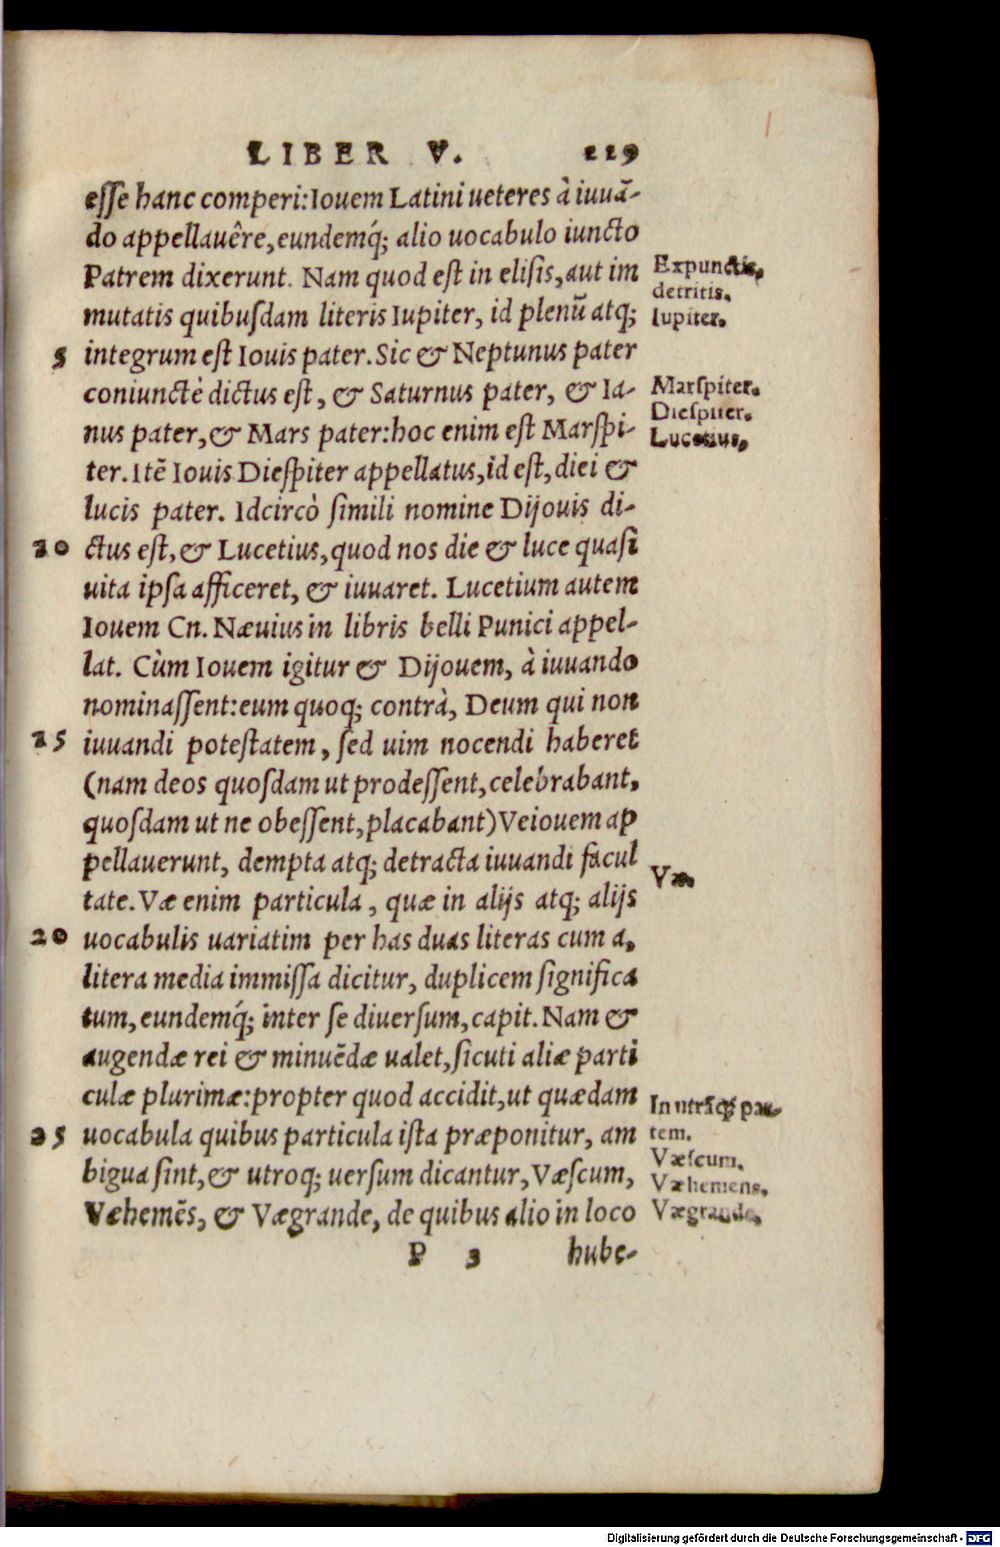 LIBER V. 229
esse hanc comperi: Iouem Latini ueteres à iuuā-
do appellauêre, eundemq́; alio uocabulo iuncto
Patrem dixerunt. Nam quod est in elisis, aut im
mutatis quibusdam literis Iupiter, id plenũ atq;
integrum est Iouis pater. Sic & Neptunus pater
coniunctè dictus est, & Saturnus pater, & Ia-
nus pater, & Mars pater: hoc enim est Marspi-
ter. Itẽ Iouis Diespiter appellatus, id est, diei &
lucis pater. Idcircò simili nomine Dijouis di-
ctus est, & Lucetius, quod nos die & luce quasi
uita ipsa afficeret, & iuuaret. Lucetium autem
Iouem Cn. Næuius in libris belli Punici appel-
lat. Cùm Iouem igitur & Dijouem, à iuuando
nominassent: eum quoq; contrà, Deum qui non
iuuandi potestatem, sed uim nocendi haberet
(nam deos quosdam ut prodessent, celebrabant,
quosdam ut ne obessent, placabant) Veiouem ap
pellauerunt, dempta atq; detracta iuuandi facul
tate. Væ enim particula, quæ in alijs atq; alijs
uocabulis uariatim per has duas literas cum a,
litera media immissa dicitur, duplicem significa
tum, eundemq́; inter se diuersum, capit. Nam &
augendæ rei & minuẽdæ ualet, sicuti aliæ parti
culæ plurimæ: propter quod accidit, ut quædam
uocabula quibus particula ista præponitur, am
bigua sint, & utroq; uersum dicantur, Væscum,
Væhemẽs, & Vægrande, de quibus alio in loco
P 3 hube-
5
10
15
20
25
Expunctis,
detritis.
Iupiter.
Marspiter.
Diespiter.
Lucetius.
Væ.
In utrãq; par-
tem.
Væscum.
Væhemens.
Vægrande.
Digitalisierung gefördert durch die Deutsche Forschungsgemeinschaft - DFG